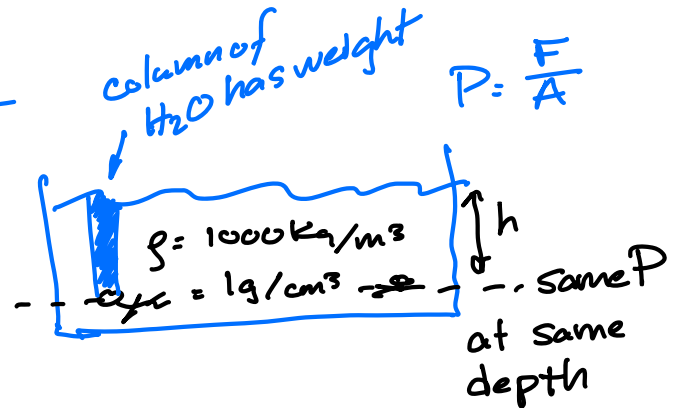 column of
H₂O has weight
P = F/A
ρ = 1000 kg/m³
= 1g/cm³
h
same P
at same
depth